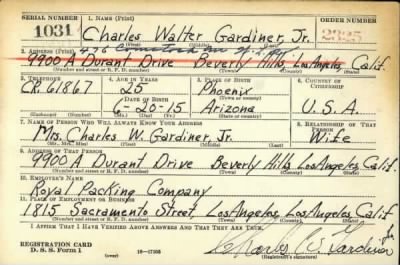 SERIAL NUMBER 1. NAME (Print) ORDER NUMBER
1031 Charles Walter Gardiner, Jr.
(First) (Middle) (Last)
2. ADDRESS (Print)
9900 A Durant Drive Beverly Hills, Los Angeles Calif.
(Number and street or R. F. D. number) (Town) (County) (State)
3. TELEPHONE 4. AGE IN YEARS 5. PLACE OF BIRTH 6. COUNTRY OF CITIZENSHIP
CR. 61867 25 Phoenix
DATE OF BIRTH (Town or county)
6-20-15 Arizona U.S.A.
(Exchange) (Number) (Mo.) (Day) (Yr.) (State or country)
7. NAME OF PERSON WHO WILL ALWAYS KNOW YOUR ADDRESS 8. RELATIONSHIP OF THAT PERSON
Mrs. Charles W. Gardiner, Jr. Wife
(Mr., Mrs., Miss) (First) (Middle) (Last)
9. ADDRESS OF THAT PERSON
9900 A Durant Drive Beverly Hills Los Angeles, Calif.
(Number and street or R. F. D. number) (Town) (County) (State)
10. EMPLOYER'S NAME
Royal Packing Company
11. PLACE OF EMPLOYMENT OR BUSINESS
1815 Sacramento Street, Los Angeles, Los Angeles, Calif
(Number and street or R. F. D. number) (Town) (County) (State)
I AFFIRM THAT I HAVE VERIFIED ABOVE ANSWERS AND THAT THEY ARE TRUE.
REGISTRATION CARD
D. S. S. Form 1 (over) Charles W. Gardiner Jr
(Registrant's signature)